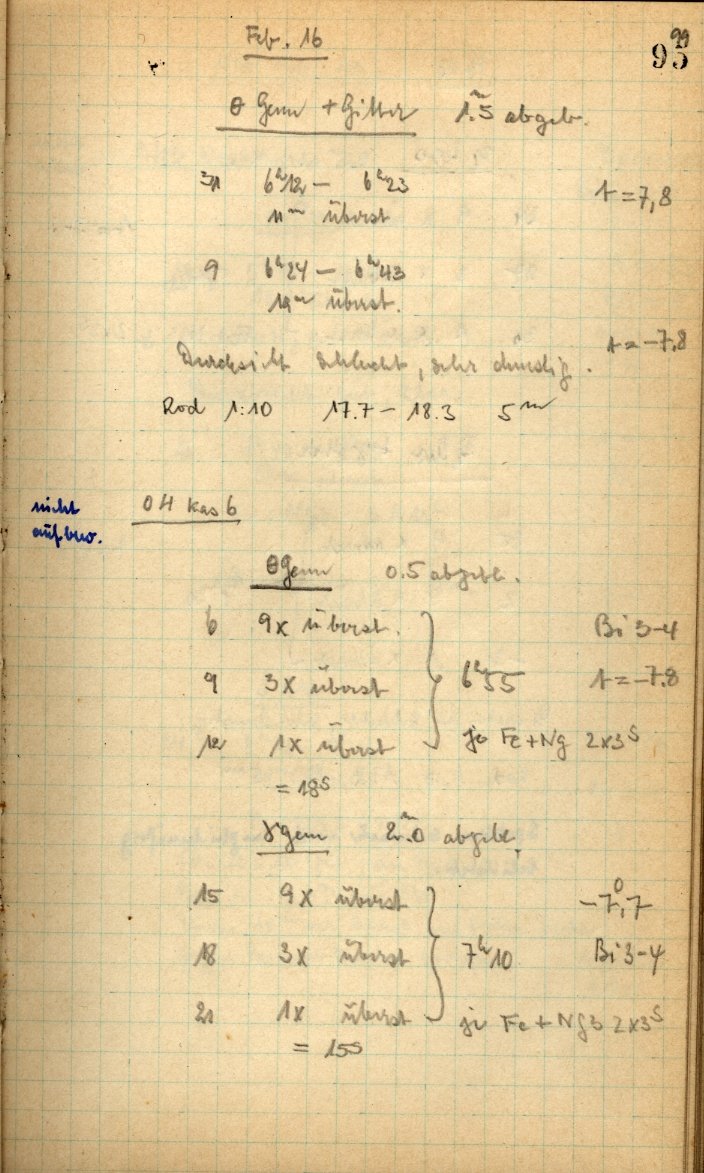 Feb. 16
99
95
θ Gem + Gitter 1ᵐ.5 abgeb.
31 6ʰ12 – 6ʰ23 t = 7,8
11ᵐ überst
9 6ʰ24 – 6ʰ43
19ᵐ überst.
t = –7.8
Durchsicht schlecht, sehr dunstig.
Rod 1:10 17.7 – 18.3 5ᵐ
nicht
aufbew.
OH Kas 6
θ Gem 0.5 abgebl.
6 9x überst. Bi 3–4
9 3x überst 6ʰ55 t = –7.8
12 1x überst je Fe + Ng 2x3ˢ
= 18ˢ
γ Gem 2ᵐ.0 abgebl.
15 9x überst –7⁰,7
18 3x überst 7ʰ10 Bi 3–4
21 1x überst je Fe + Ng 3 2x3ˢ
= 15ˢ